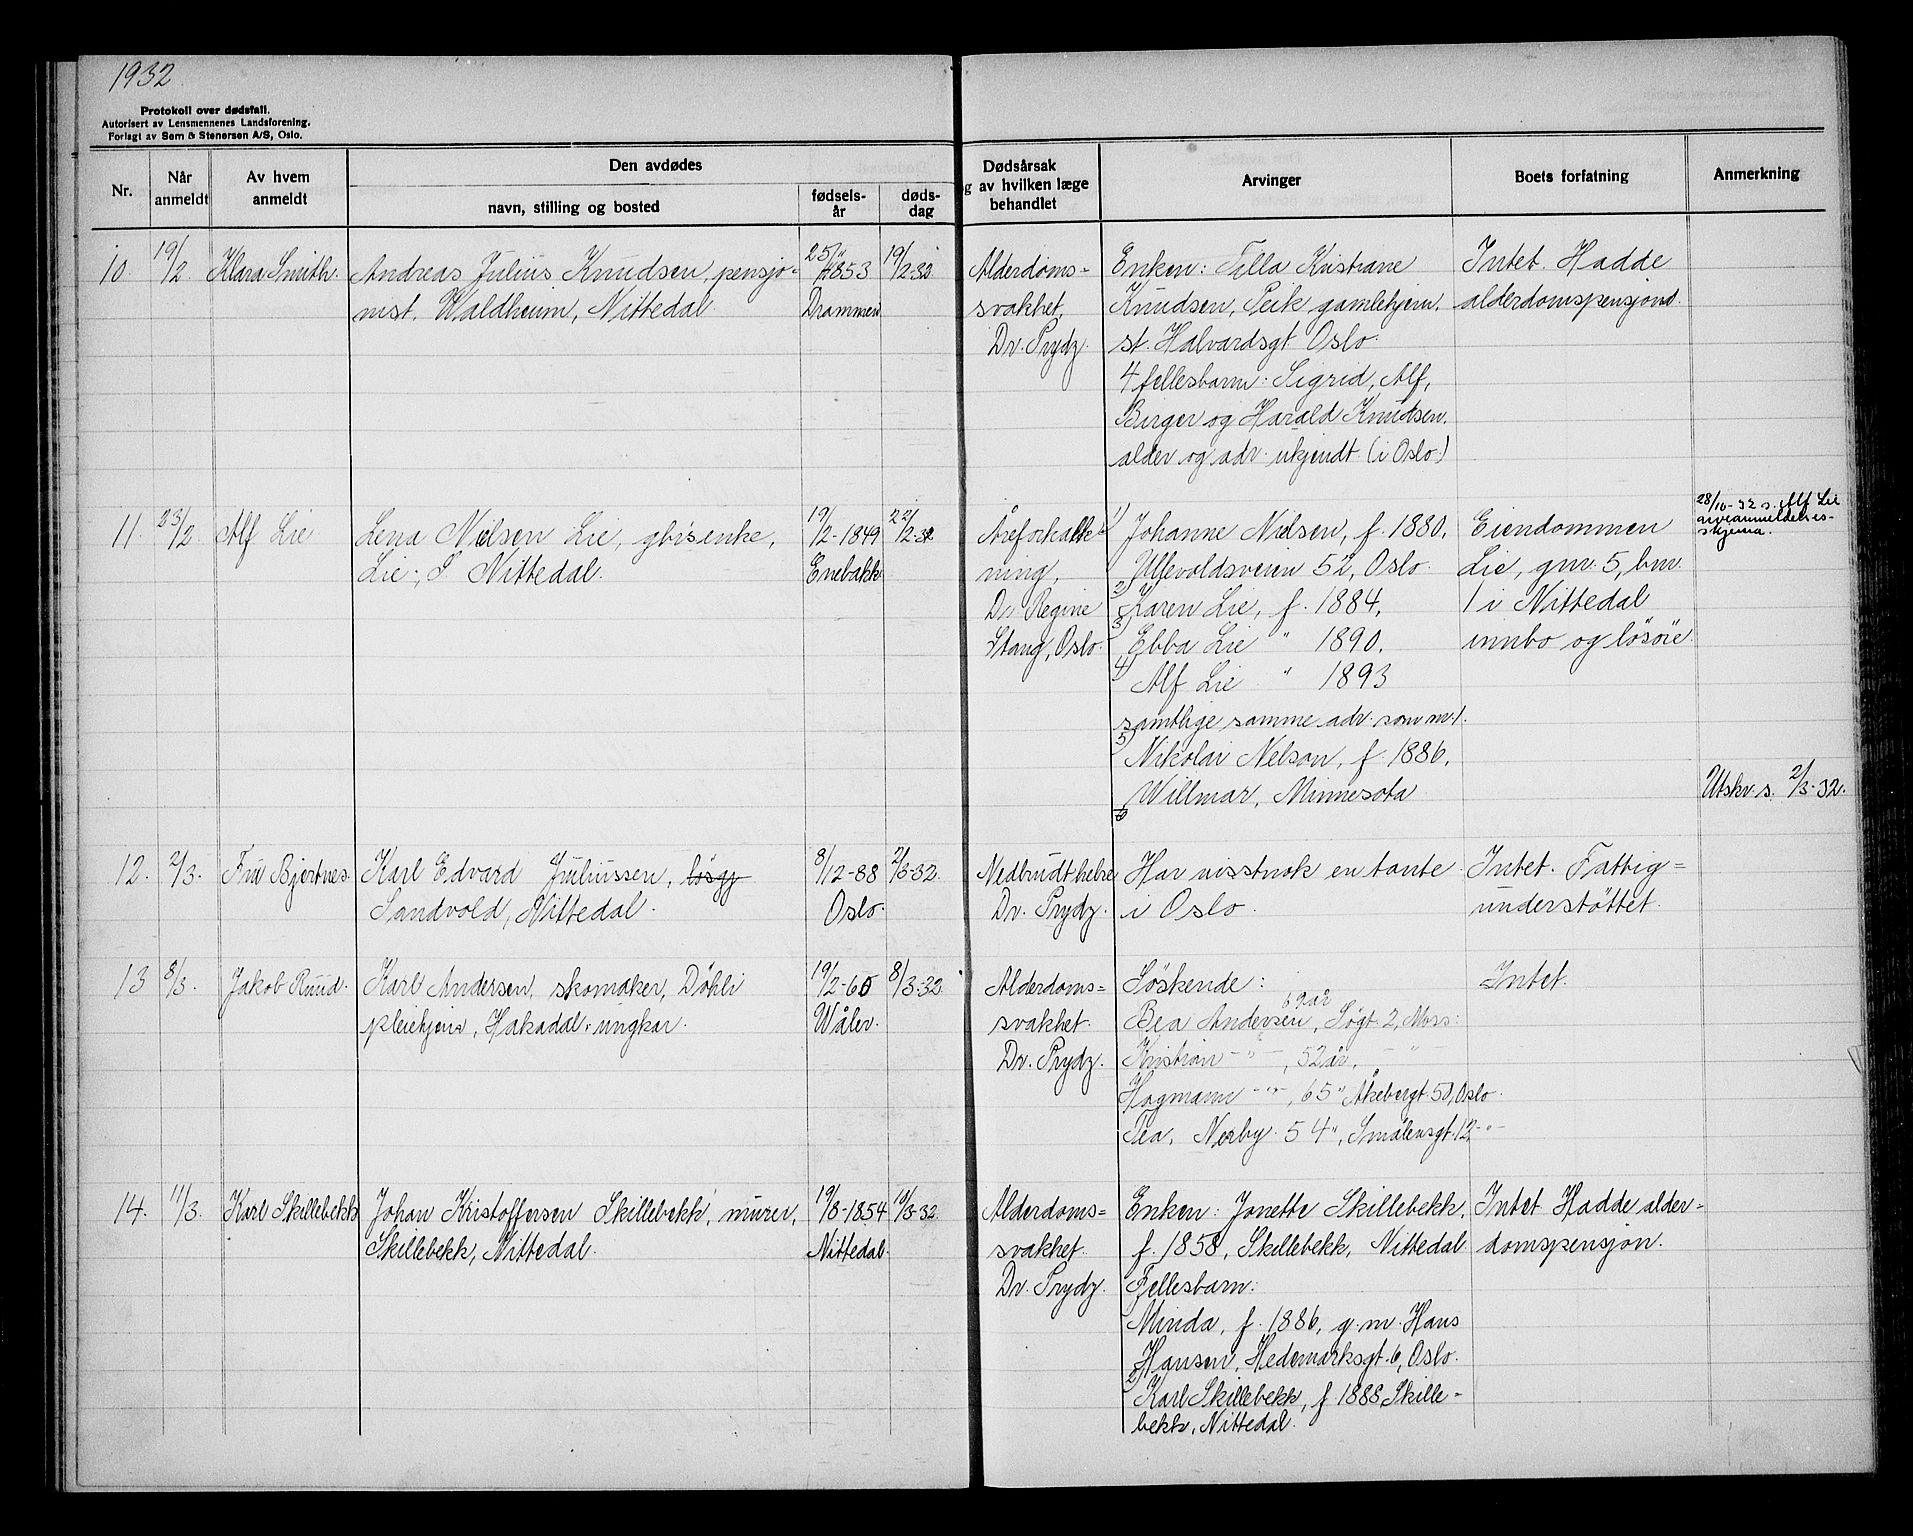 1932
Protokoll over dødsfall.
Autorisert av Lensmennenes Landsforening.
Forlagt av Sem & Stenersen A/S, Oslo.
Nr.
Når anmeldt
Av hvem anmeldt
Den avdødes
navn, stilling og bosted
fødselsår
dødsdag
Dødsårsak
og av hvilken læge
behandlet
Arvinger
Boets forfatning
Anmerkning
10 19/2 Klara Smith. Andreas Julius Knudsen, pensjo-
nist, Waldheim, Nittedal
25/11 1853
Drammen
19/2-32
Alderdoms-
svakhet,
Dr. Prydz.
Enken: Tilla Kristiane
Knudsen, Peik gamlehjem,
st. Halvardsgt Oslo.
4 fellesbarn: Sigrid, Alf,
Birger og Harald Knudsen.
alder og adr. ukjendt (i Oslo)
Intet. Hadde
alderdomspensjon
11. 23/2 Alf Lie Lena Nielsen Lie, gbr.s enke,
Lie, S. Nittedal.
19/2-1849
Enebakk
22/2-32
Åreforkalk-
ning,
Dr Regine
Stang, Oslo.
1) Johanne Nielsen, f. 1880.
Ullevoldsveien 52, Oslo.
2) Karen Lie, f. 1884,
3) Ebba Lie " 1890.
4) Alf Lie " 1893
samtlige samme adr. som nr 1.
5) Nikolai Nelson, f. 1886,
Willmar, Minnesota
6
Eiendommen
Lie, gnr. 5, bnr
1 i Nittedal
innbo og løsøie
28/10-32 s. Alf Lie
arveanmeldelses-
skjema.
Utskr. s. 2/3-32.
12. 2/3. Fru Bjertnes. Karl Edvard Juliussen, løsgj
Sandvold, Nittedal.
8/12-88
Oslo.
2/3-32.
Nedbrudt helse
Dr. Prydz.
Har visstnok en tante
i Oslo.
Intet. Fattig-
understøttet.
13 8/3. Jakob Ruud. Karl Andersen, skomaker, Døhli
pleiehjem, Hakadal. ungkar.
19/2-60
Wåler.
8/3-32
Alderdoms-
svakhet.
Dr. Prydz.
Søskende:
69 år
Bea Andersen, Søgt. 2, Moss.
Kristian - " -, 52 år, - " -
Hagmann - " -, 65 " Åkebergt 50, Oslo.
Tea, Nerby. 54 ", Smålensgt. 12 - " -
Intet.
14. 11/3. Karl Skillebekk Johan Kristoffersen Skillebekk, murer,
Skillebekk, Nittedal.
19/8-1854
Nittedal.
10/3-32
Alderdoms-
svakhet.
Dr. Prydz.
Enken: Jonette Skillebekk,
f. 1858, Skillebekk, Nittedal
Fellesbarn:
1) Minda, f. 1886, g.m. Hans
Hansen, Hedemarksgt. 6, Oslo.
2) Karl Skillebekk, f. 1888, Skille-
bekk, Nittedal.
Intet. Hadde alder-
domspensjon.